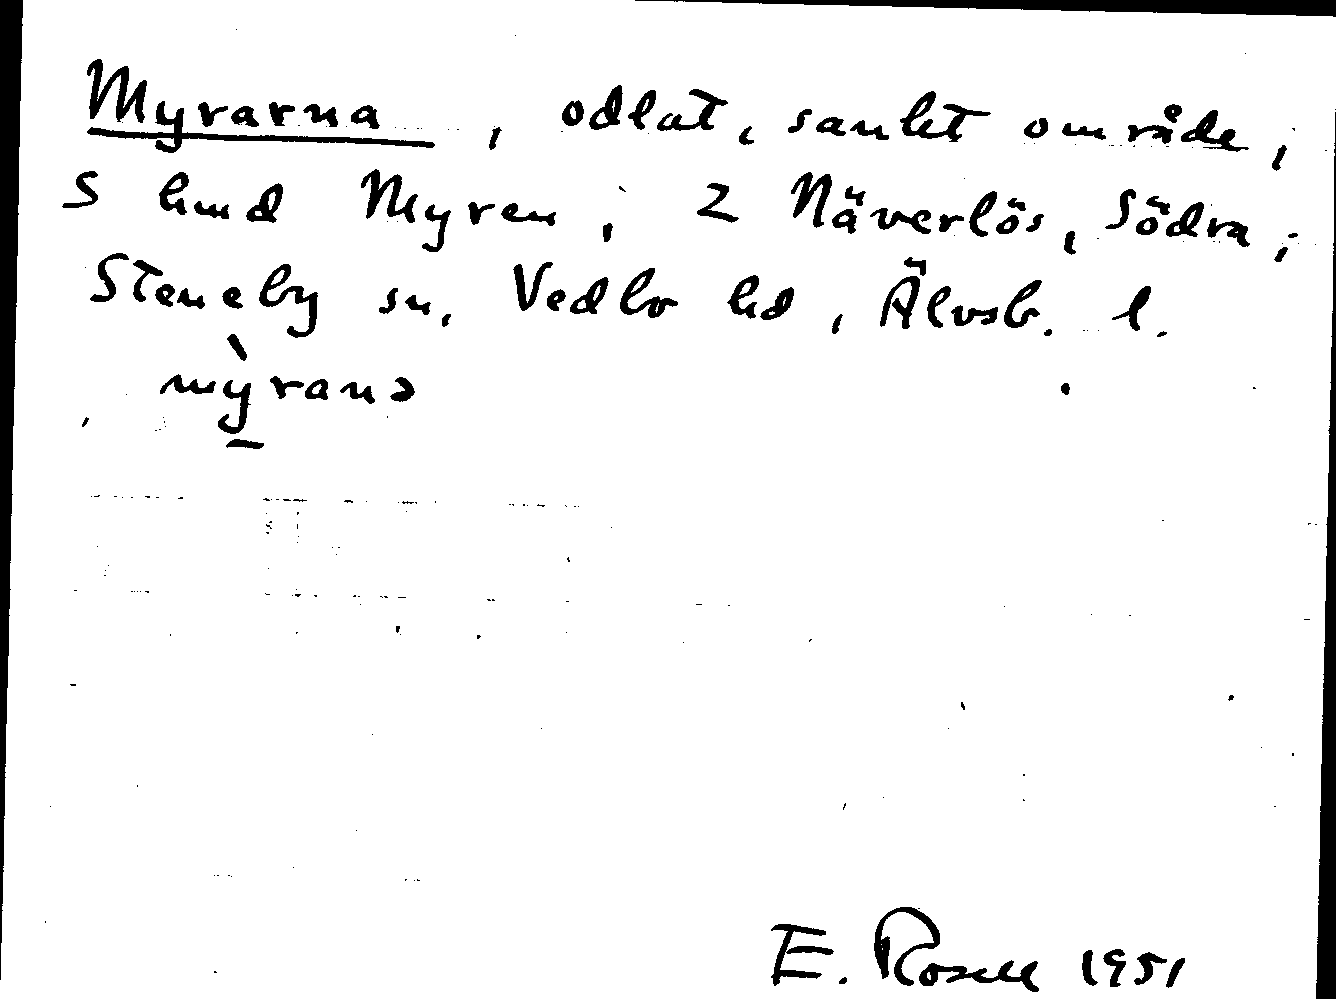 Myrarna, odlat, sankt område,
S hmd Myren, 2 Näverlös, Södra,
Steneby sn, Vedbo hd, Älvsb. l.
mỳ̱ranə
E. Rosell 1951